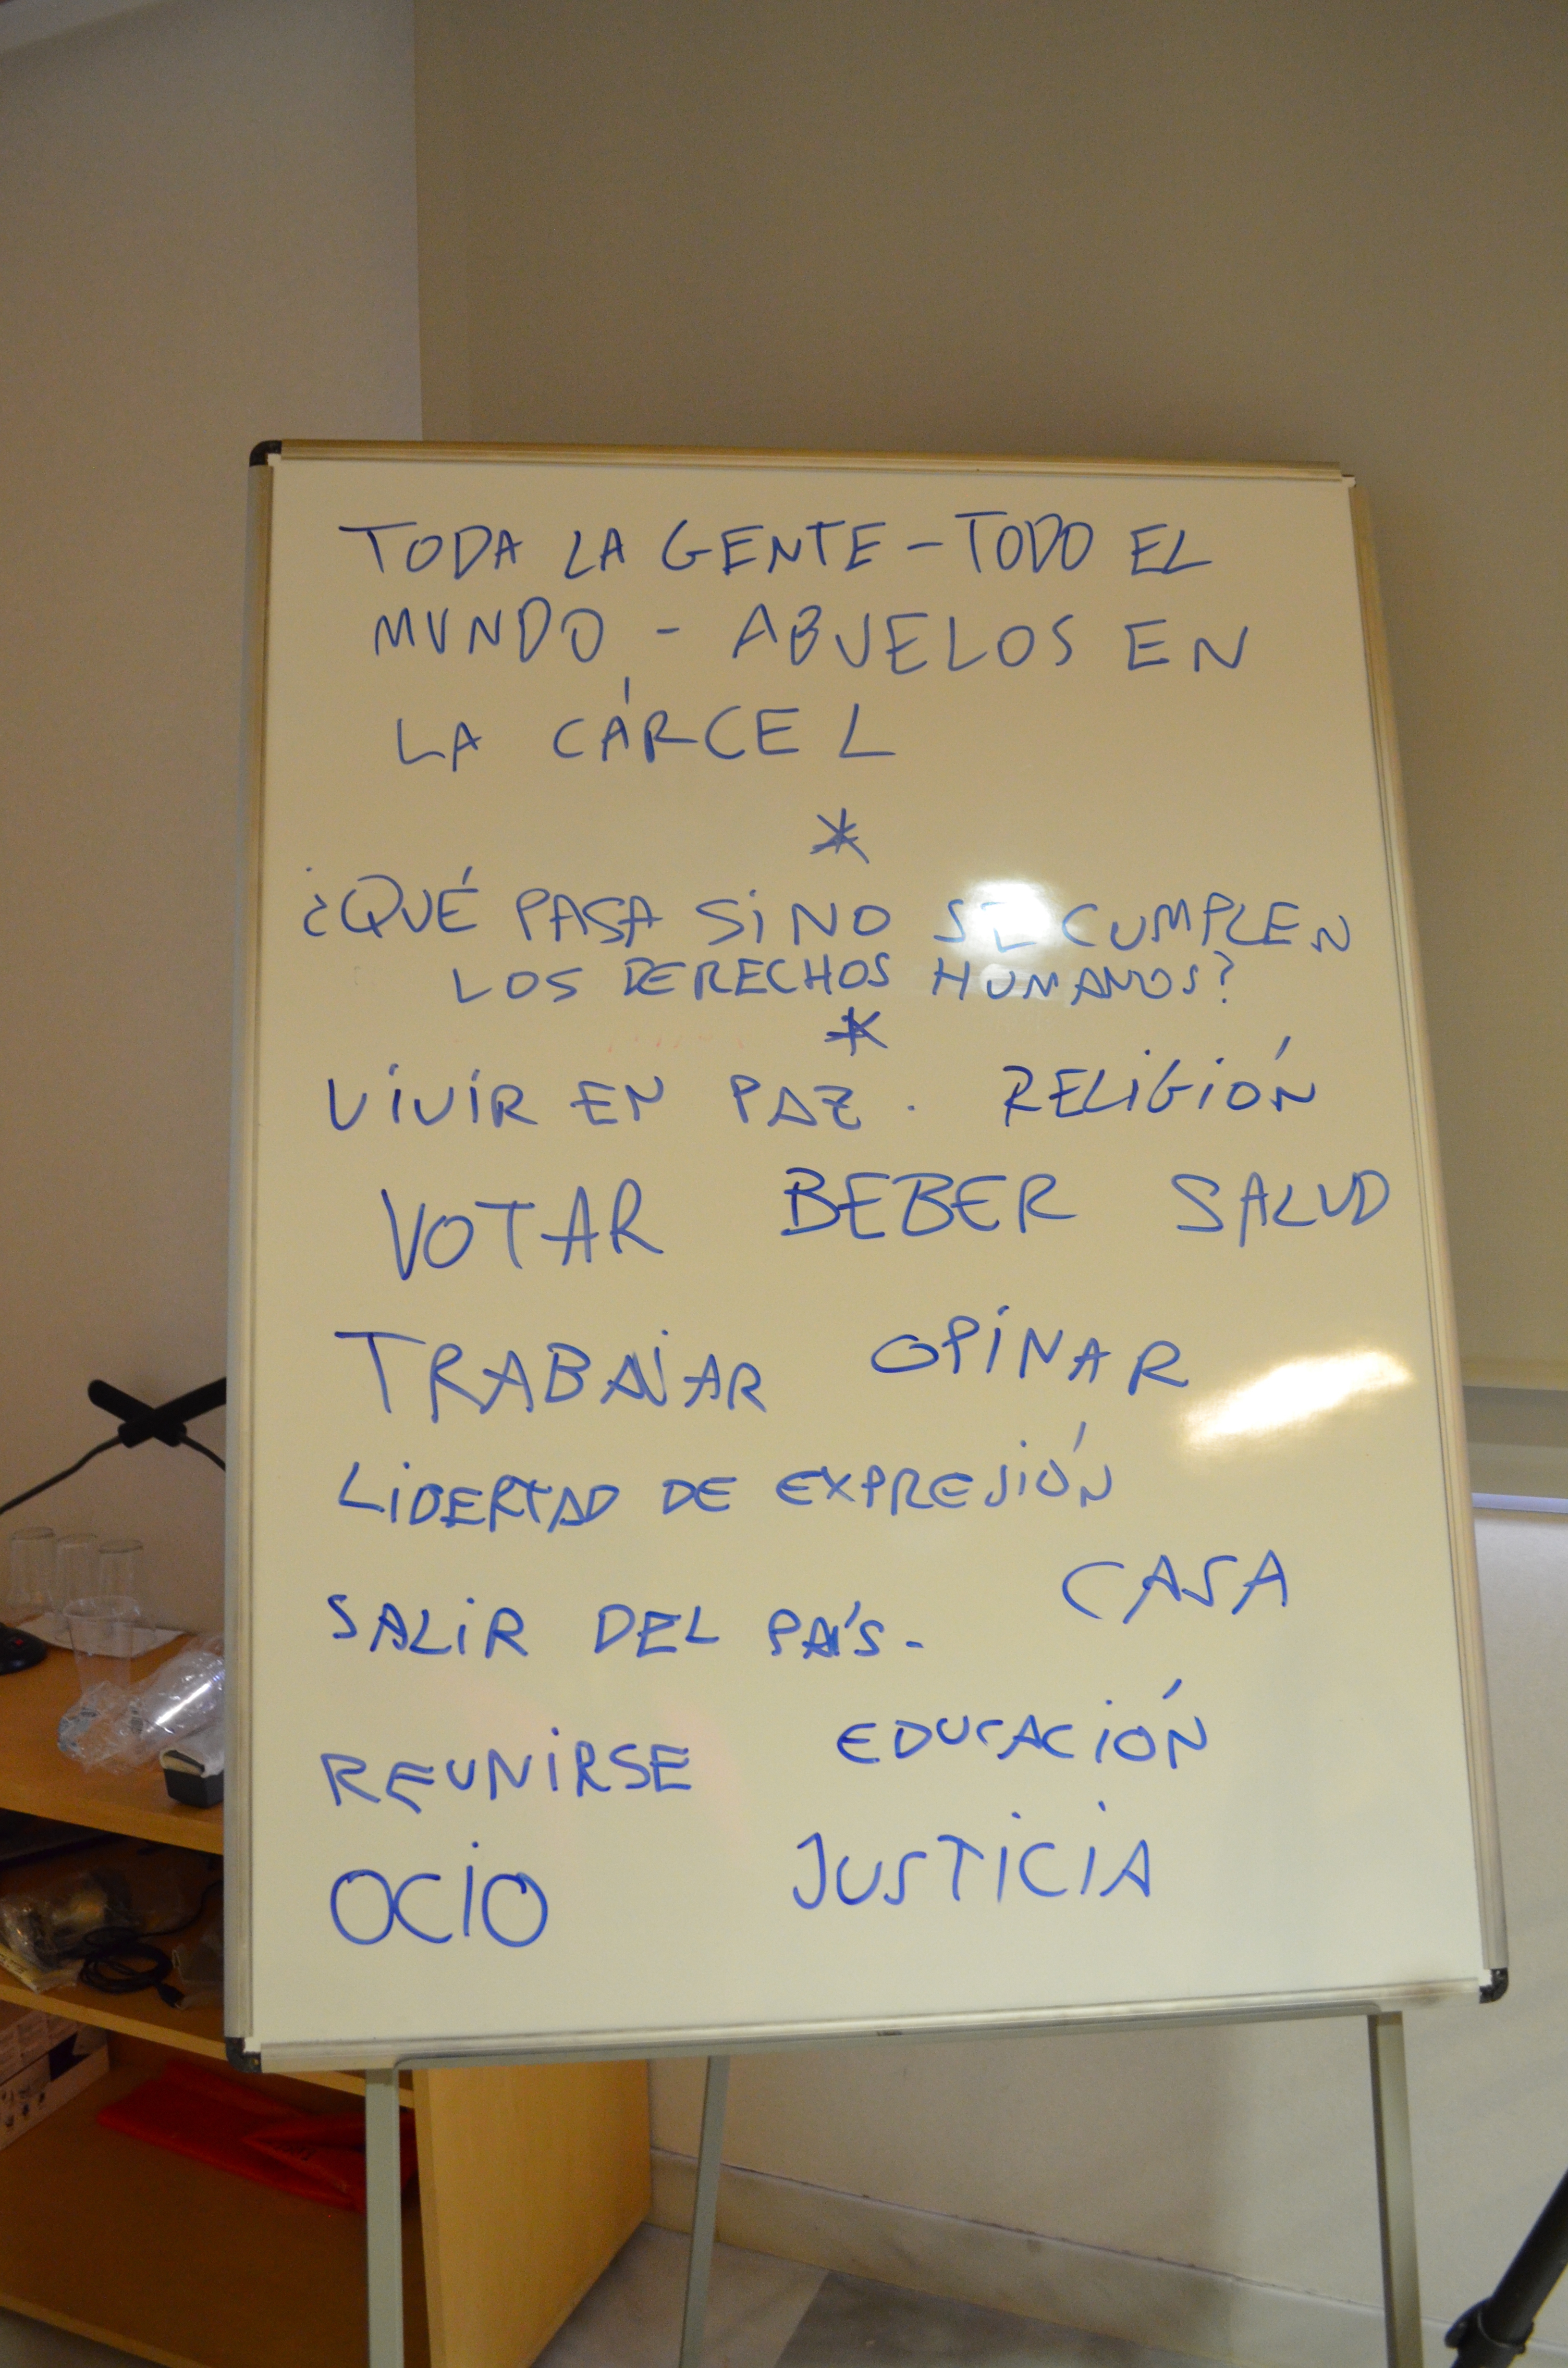 TODA LA GENTE - TODO EL
MUNDO - ABUELOS EN
LA CÁRCEL
*
¿QUÉ PASA SI NO SE CUMPLEN
LOS DERECHOS HUMANOS?
*
VIVIR EN PAZ. RELIGIÓN
VOTAR BEBER SALUD
TRABAJAR OPINAR
LIBERTAD DE EXPRESIÓN
SALIR DEL PAÍS- CASA
REUNIRSE EDUCACIÓN
OCIO JUSTICIA